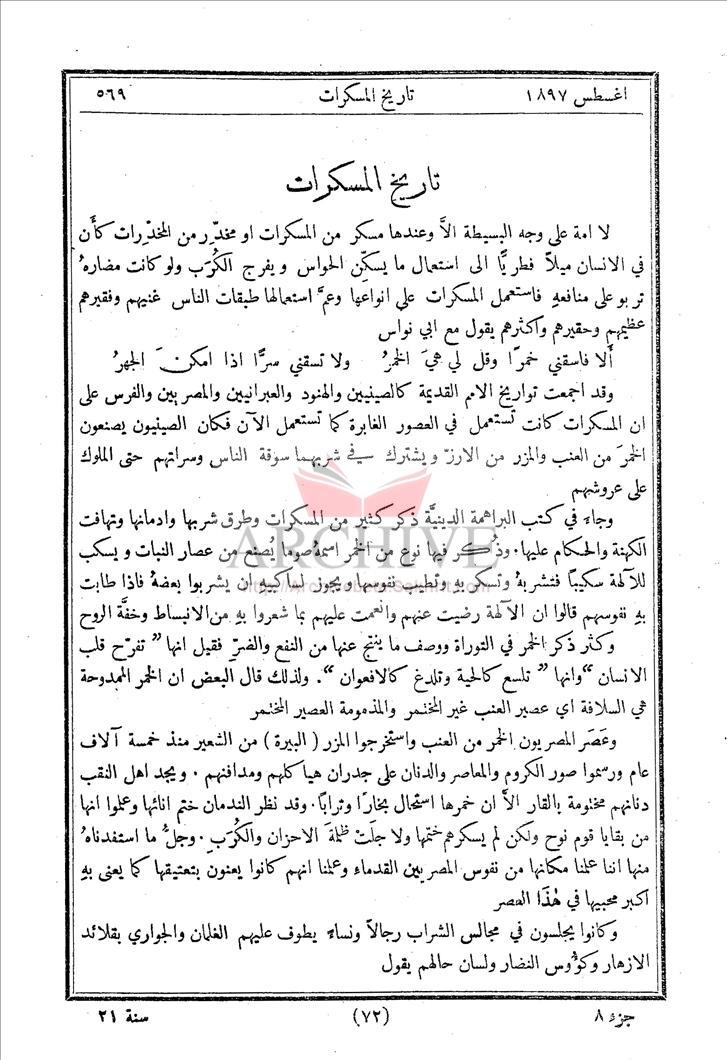 اغسطس ١٨٩٧ تاريخ المسكرات ٥٦٩
تاريخ المسكرات
لا امة على وجه البسيطة الاَّ وعندها مسكر من المسكرات او مخدِّر من المخدِّرات كأَن
في الانسان ميلاً فطريًّا الى استعمال ما يسكّن الحواس ويفرج الكُرَب ولو كانت مضارهُ
تربو على منافعهِ فاستعمل المسكرات على انواعها وعمَّ استعمالها طبقات الناس غنيهم وفقيرهم
عظيمهم وحقيرهم واكثرهم يقول مع ابي نواس
أَلا فاسقني خمرًا وقل لي هيَ الخمرُ ولا تسقني سرًّا اذا امكنَ الجهرُ
وقد اجمعت تواريخ الامم القديمة كالصينيين والهنود والعبرانيين والمصريين والفرس على
ان المسكرات كانت تستعمل في العصور الغابرة كما تستعمل الآن فكان الصينيون يصنعون
الخمرَ من العنب والمزر من الارزّ ويشترك في شربهما سوقة الناس وسراتهم حتى الملوك
على عروشهم
وجاءَ في كتب البراهمة الدينيَّة ذكر كثير من المسكرات وطرق شربها وادمانها وتهافت
الكهنة والحكام عليها. وذُكر فيها نوع من الخمر اسمهُ صوما يُصنع من عصار النبات ويسكب
للآلهة سكيبًا فتشربهُ وتسكر بهِ وتطيب نفوسها ويجوز لساكبيهِ ان يشربوا بعضهُ فاذا طابت
بهِ نفوسهم قالوا ان الآلهة رضيت عنهم وانعمت عليهم بما شعروا بهِ من الانبساط وخفَّة الروح
وكثر ذكر الخمر في التوراة ووصف ما ينتج عنها من النفع والضرّ فقيل انها ” تفرّح قلب
الانسان “ وانها ” تلسع كالحية وتلدغ كالافعوان “. ولذلك قال البعض ان الخمر الممدوحة
هي السلافة اي عصير العنب غير المختمر والمذمومة العصير المختمر
وعَصَر المصريون الخمر من العنب واستخرجوا المزر ( البيرة ) من الشعير منذ خمسة آلاف
عام ورسموا صور الكروم والمعاصر والدنان على جدران هياكلهم ومدافنهم . ويجد اهل النقب
دنانهم مختومة بالقار الاَّ ان خمرها استحال بخارًا وترابًا. وقد نظر الندمان ختم انائها وعلموا انها
من بقايا قوم نوح ولكن لم يسكرهم ختمها ولا جلَت ظلمةَ الاحزان والكُرَبِ. وجلُّ ما استفدناهُ
منها اننا علمنا مكانها من نفوس المصريين القدماء وعلمنا انهم كانوا يعنون بتعتيقها كما يعنى بهِ
اكبر محبيها في هٰذا العصر
وكانوا يجلسون في مجالس الشراب رجالاً ونساءً يطوف عليهم الغلمان والجواري بقلائد
الازهار وكؤُوس النضار ولسان حالهم يقول
جزء ٨ (٧٢) سنة ٢١
ARCHIVE